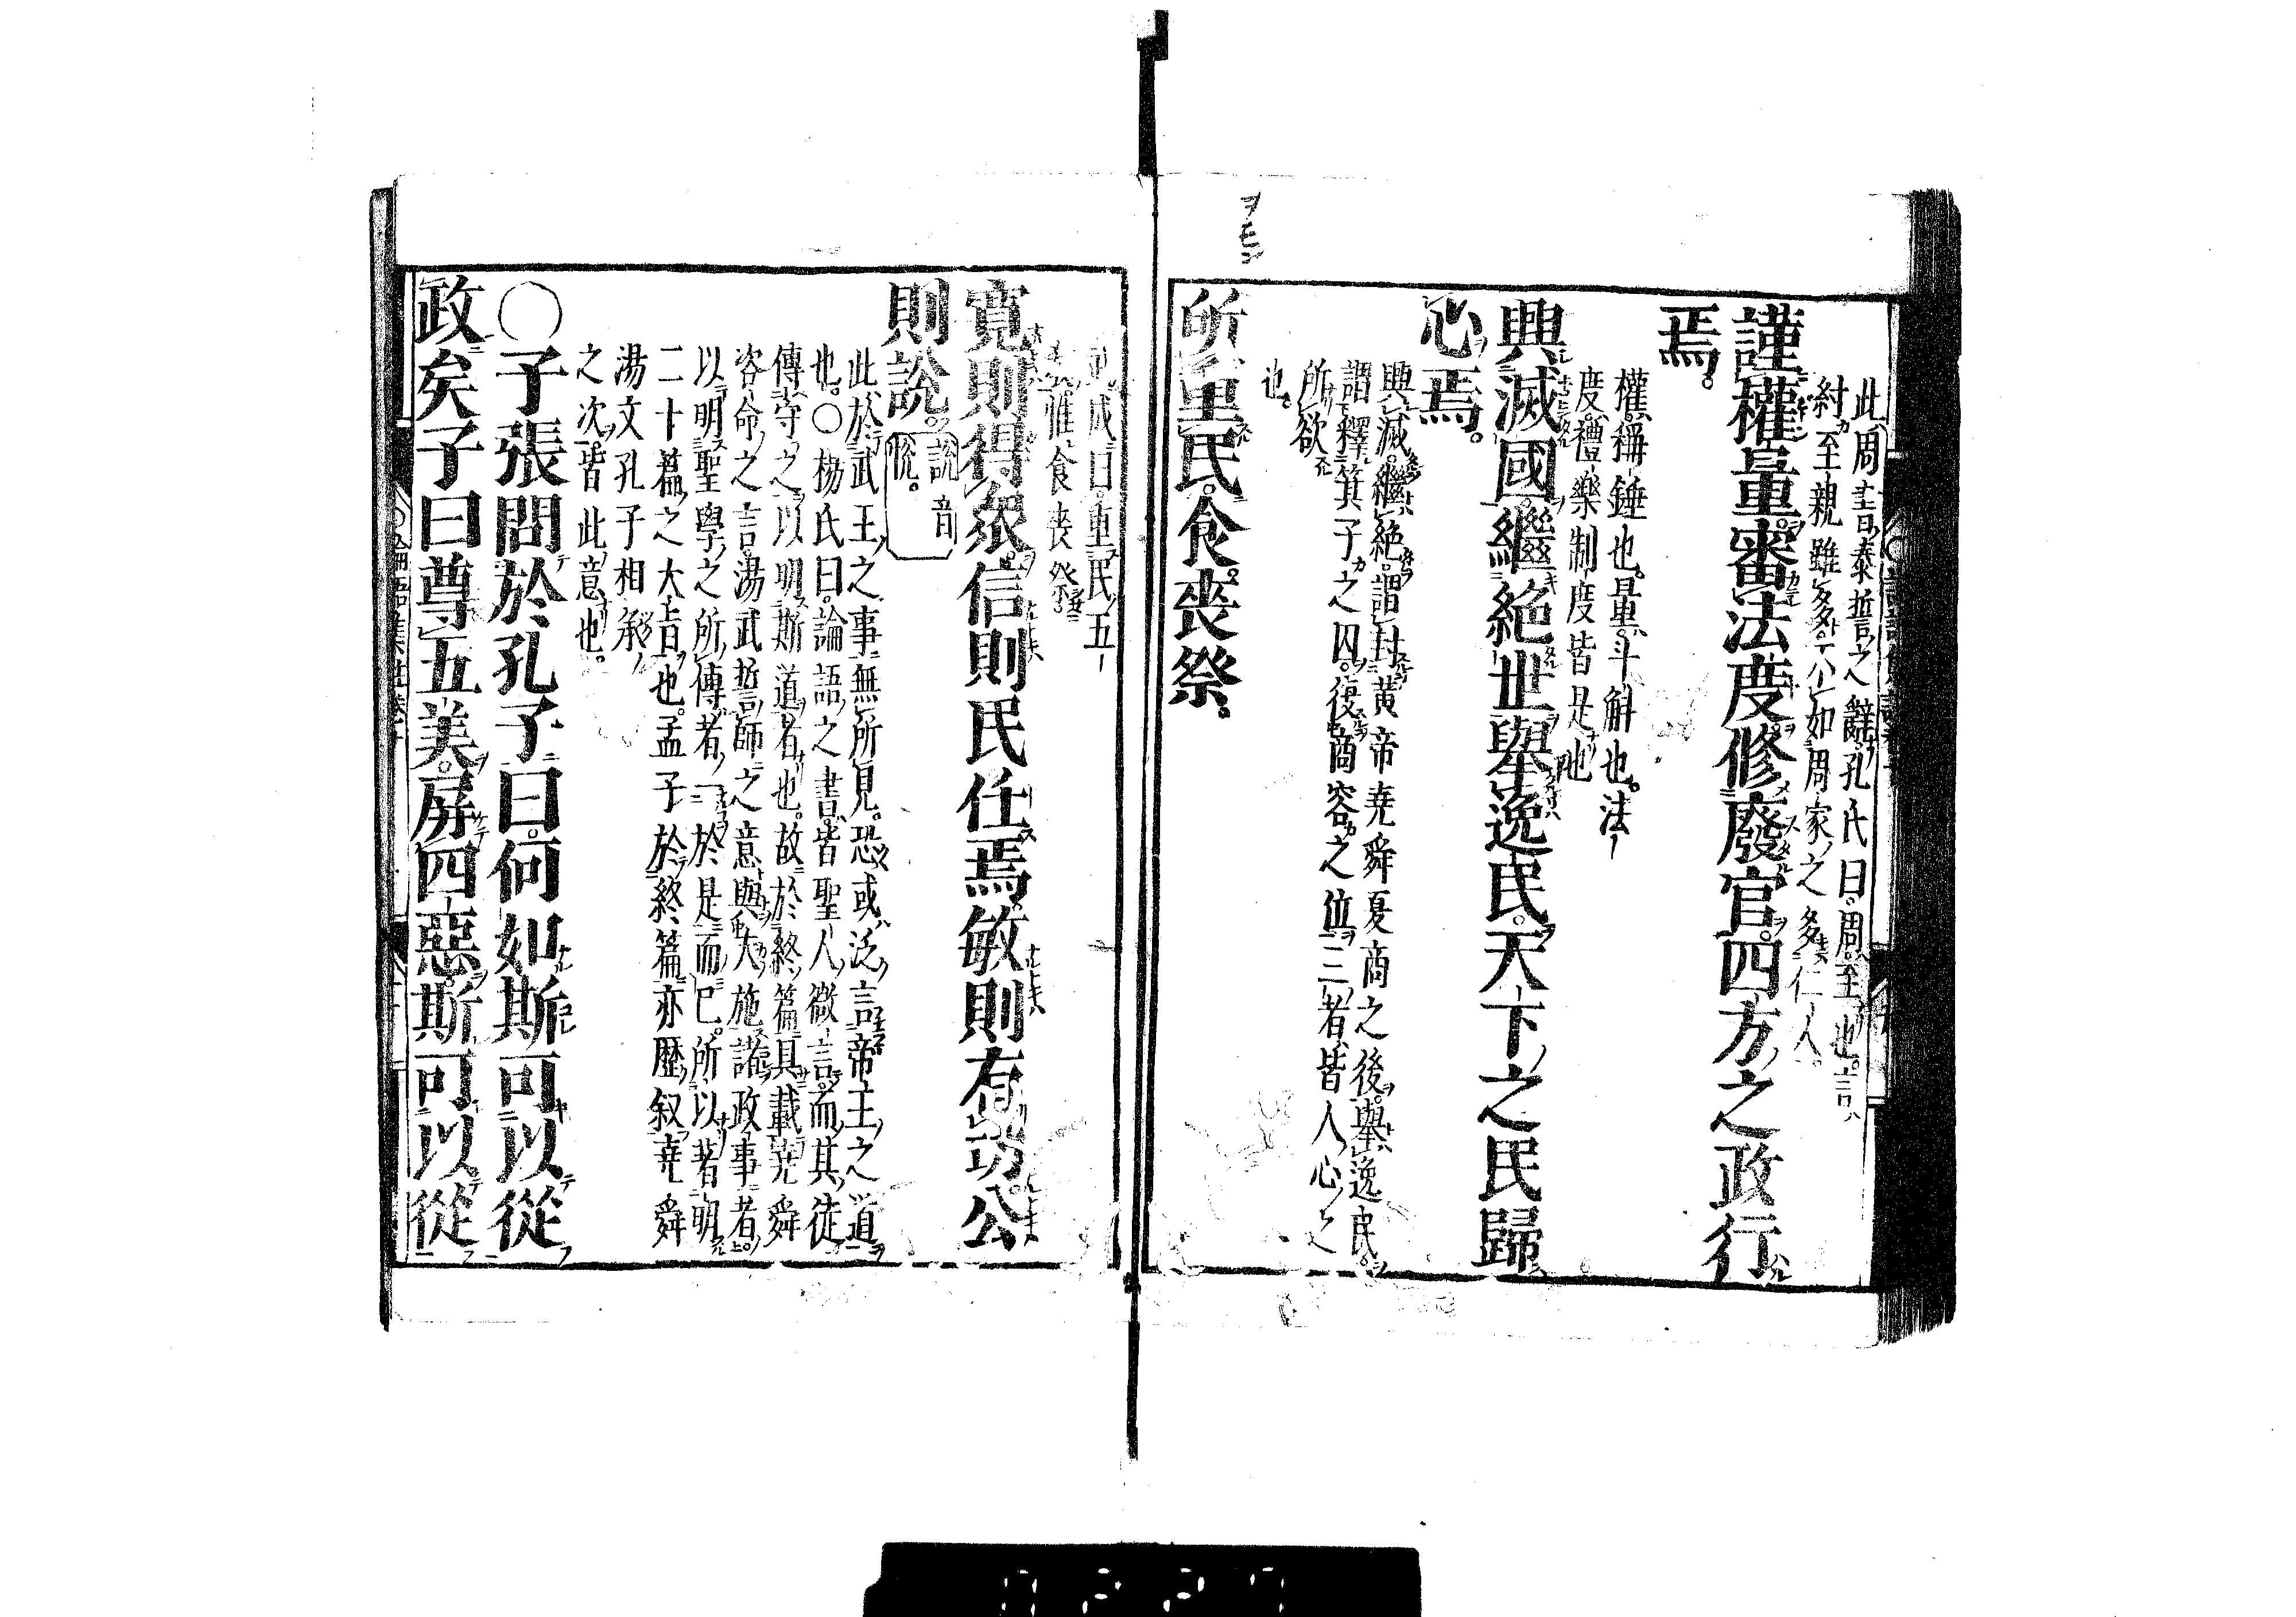 此周書泰誓之辭孔氏曰周至也言
紂至親雖多不如周家之多仁人
謹權量審法度修廢官四方之政行
焉
權稱錘也量斗斛也法
度禮樂制度皆是也
興滅國繼絶世舉逸民天下之民歸
心焉
興滅繼絶謂封黄帝尭舜夏商之後舉逸民
謂釋箕子之囚復商容之位三者皆人心之
所欲
也
所重民食喪祭
武成曰重民五
教惟食喪祭
寛則得衆信則民任焉敏則有功公
則說
說音
悅
此於武王之事無所見恐或泛言帝王之道
也○楊氏曰論語之書皆聖人微言而其徒
傳守之以明斯道者也故於終篇具載尭舜
咨命之言湯武誓師之意與夫施諸政事者
以明聖學之所傳者一於是而已所以著明
二十篇之大旨也孟子於終篇亦歴叙尭舜
湯文孔子相承
之次皆此意也
○子張問於孔子曰何如斯可以從
政矣子曰尊五美屏四惡斯可以從